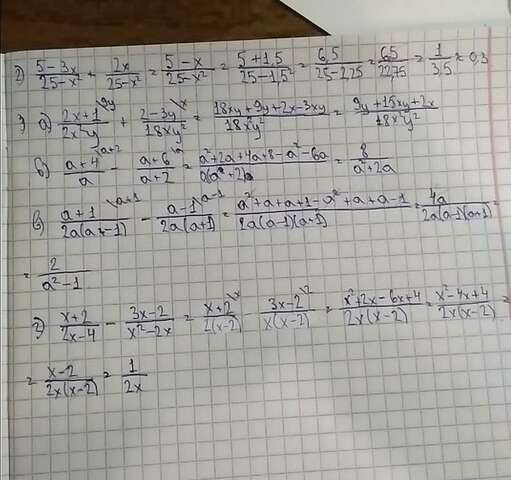 2) (5-3x)/(25-x²) + 2x/(25-x²) = (5-x)/(25-x²) = (5+1,5)/(25-1,5²) = 6,5/(25-2,25) = 6,5/22,75 = 1/3,5 ≈ 0,3
3) a) (2x+1)/(2x²y) \9y + (2-3y)/(18xy²) \x = (18xy+9y+2x-3xy)/(18x²y²) = (9y+15xy+2x)/(18x²y²)
б) (a+4)/a \a+2 - (a+6)/(a+2) \a = (a²+2a+4a+8-a²-6a)/(a(a+2)) = 8/(a²+2a)
в) (a+1)/(2a(a-1)) \a+1 - (a-1)/(2a(a+1)) \a-1 = (a²+a+a+1-a²+a+a-1)/(2a(a-1)(a+1)) = 4a/(2a(a-1)(a+1)) =
= 2/(a²-1)
г) (x+2)/(2x-4) - (3x-2)/(x²-2x) = (x+2)/(2(x-2)) \x - (3x-2)/(x(x-2)) \2 = (x²+2x-6x+4)/(2x(x-2)) = (x²-4x+4)/(2x(x-2)) =
= (x-2)/(2x(x-2)) = 1/(2x)